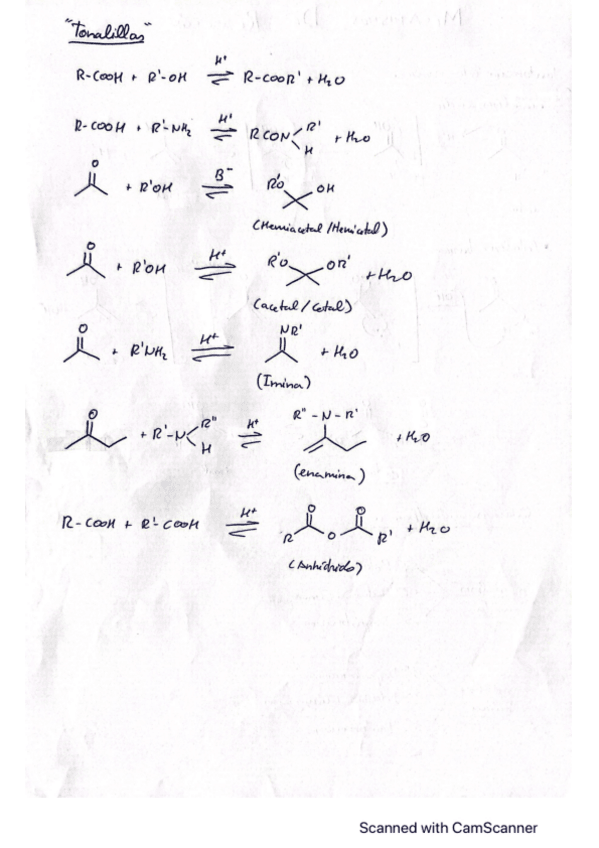 "Tonalillas"
R-COOH + R'-OH ⇌ H⁺ R-COOR' + H₂O
R-COOH + R'-NH₂ ⇌ H⁺ RCON R' H + H₂O
O + R'OH ⇌ B⁻ R'O OH
(Hemiacetal/Hemicetal)
O + R'OH ⇌ H⁺ R'O OR' + H₂O
(acetal/Cetal)
O + R'NH₂ ⇌ H⁺ NR' + H₂O
(Imina)
O + R'-N R'' H ⇌ H⁺ R''-N-R' + H₂O
(enamina)
R-COOH + R'-COOH ⇌ H⁺ R O O O R' + H₂O
(Anhidrido)
Scanned with CamScanner